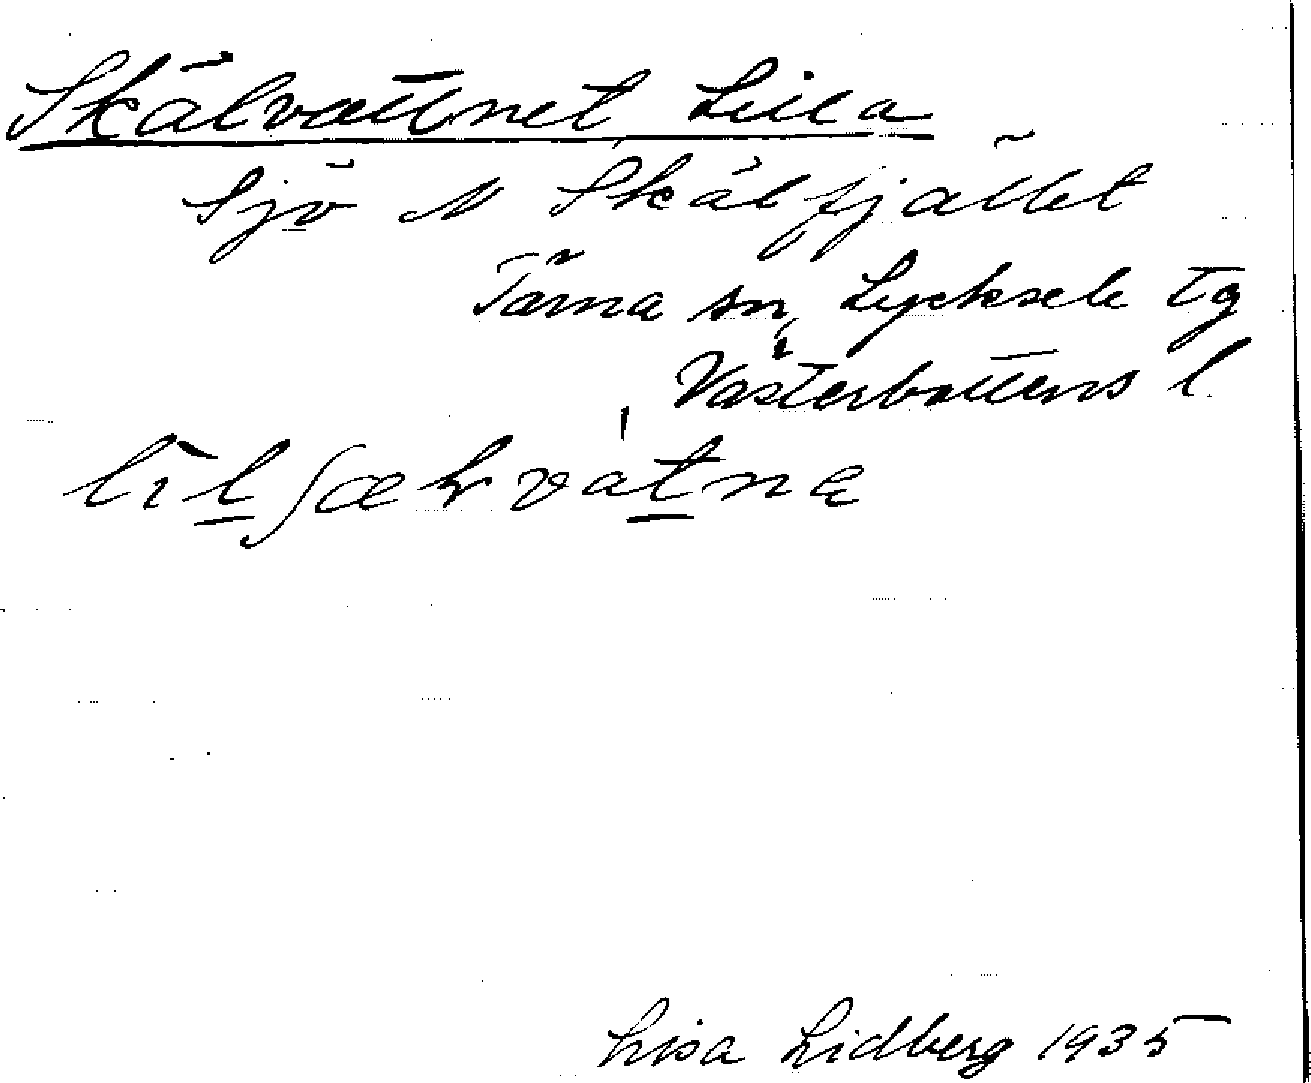 Skälvattnet Lilla
Sjö N Skälfjället
Tärna sn, Lycksele tg
Västerbottens l.
Lisa Lidberg 1935